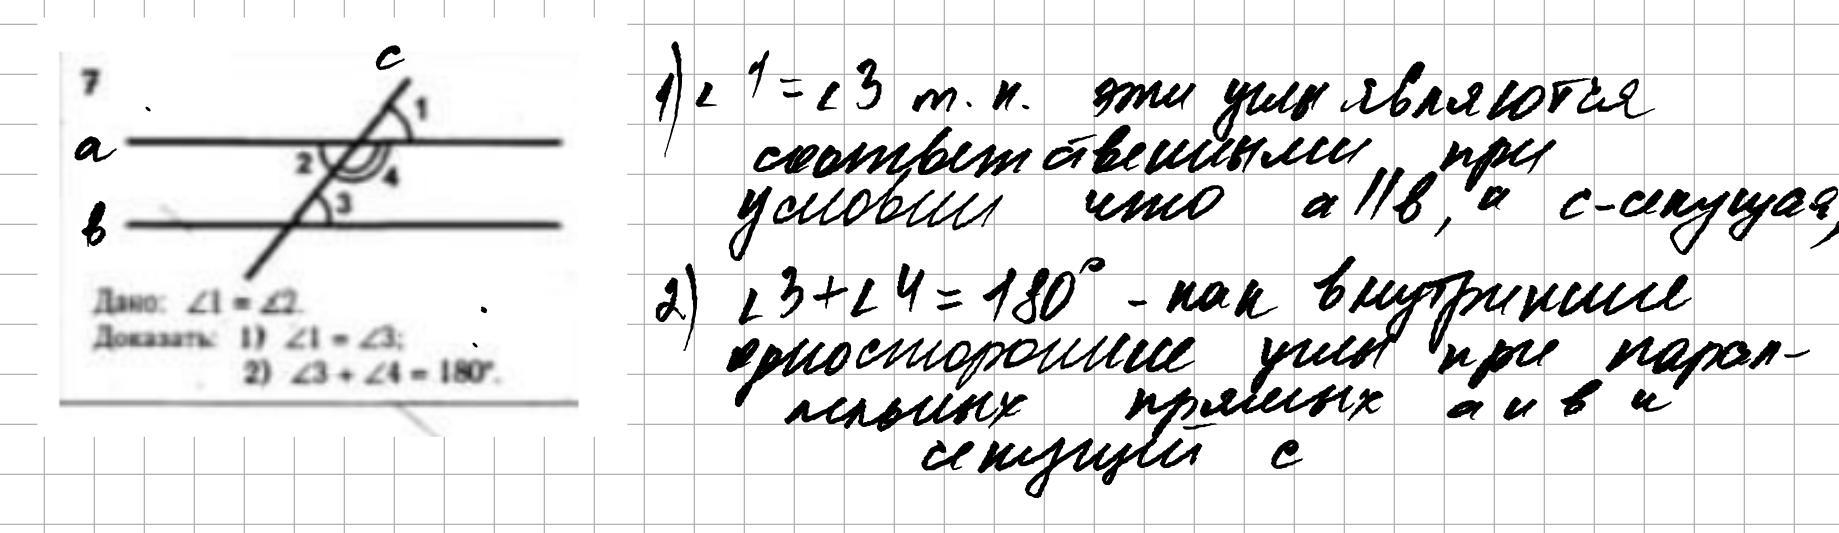 7
c
1
a
2
4
3
в
Дано: ∠1 = ∠2.
Доказать: 1) ∠1 = ∠3;
2) ∠3 + ∠4 = 180°.
1) ∠1 = ∠3 т. к. эти углы являются
соответственными при
условии что a || в, а c-секущая,
2) ∠3 + ∠4 = 180° - как внутринние
односторонние углы при парал-
лельных прямых а и в и
секущий с